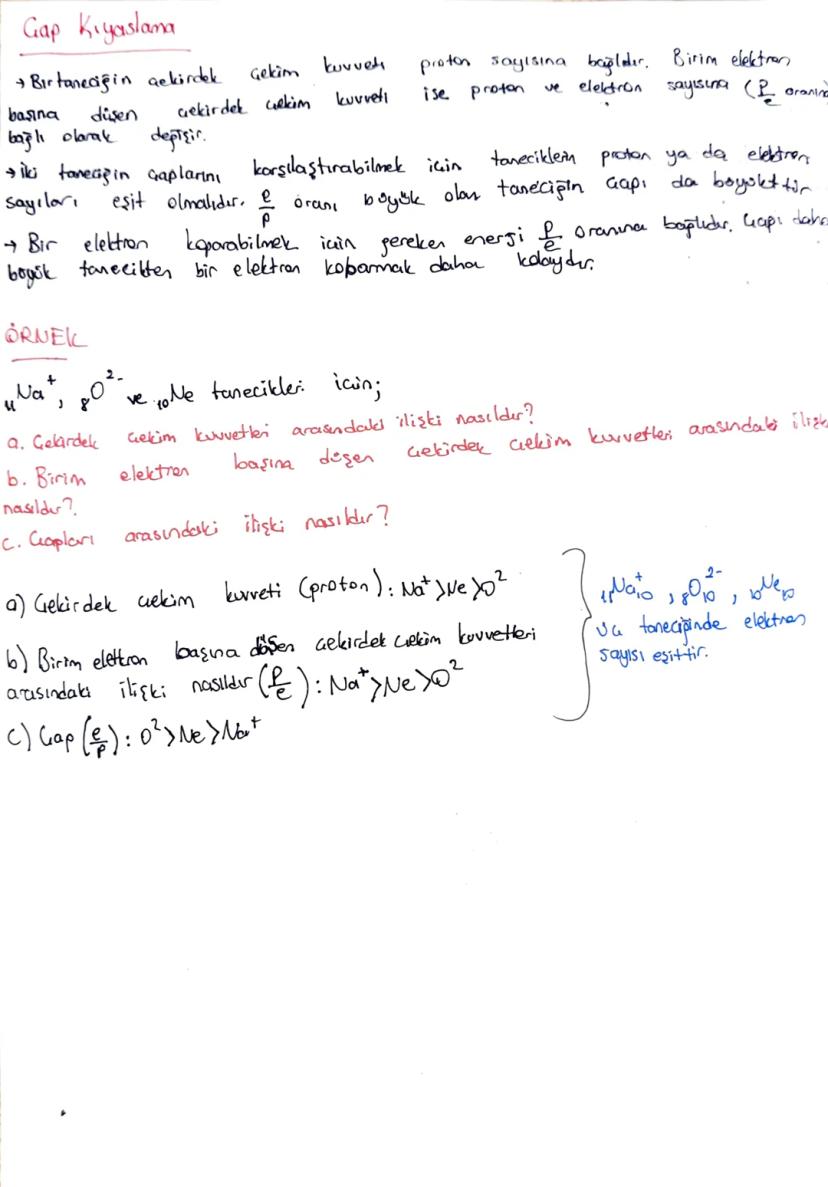 Çap Kıyaslama
→ Bir taneciğin çekirdek çekim kuvveti proton sayısına bağlıdır. Birim elektron
başına düşen çekirdek çekim kuvveti ise proton ve elektron sayısına (p/e oranına
bağlı olarak değişir.
→ İki taneciğin çaplarını karşılaştırabilmek için taneciklerin proton ya da elektron
sayıları eşit olmalıdır. e/p oranı büyük olan taneciğin çapı da büyüktür
→ Bir elektron koparabilmek için gereken enerji p/e oranına bağlıdır. Çapı daha
büyük tanecikten bir elektron kobarmak daha kolaydır.
ÖRNEK
₁₁Na⁺, ₈O²⁻ ve ₁₀Ne tanecikleri için;
a. Çekirdek çekim kuvvetleri arasındaki ilişki nasıldır?
b. Birim elektron başına düşen çekirdek çekim kuvvetleri arasındaki ilişk
nasıldır?
c. Çapları arasındaki ilişki nasıldır?
a) Çekirdek çekim kuvveti (proton): Na⁺>Ne>O²
b) Birim elektron başına düşen çekirdek çekim kuvvetleri
arasındaki ilişki nasıldır (p/e): Na⁺>Ne>O²
c) Çap (e/p): O²>Ne>Na⁺
₁₁Na⁺₁₀, ₈O²⁻₁₀, ₁₀Ne₁₀
üç taneciğinde elektron
sayısı eşittir.